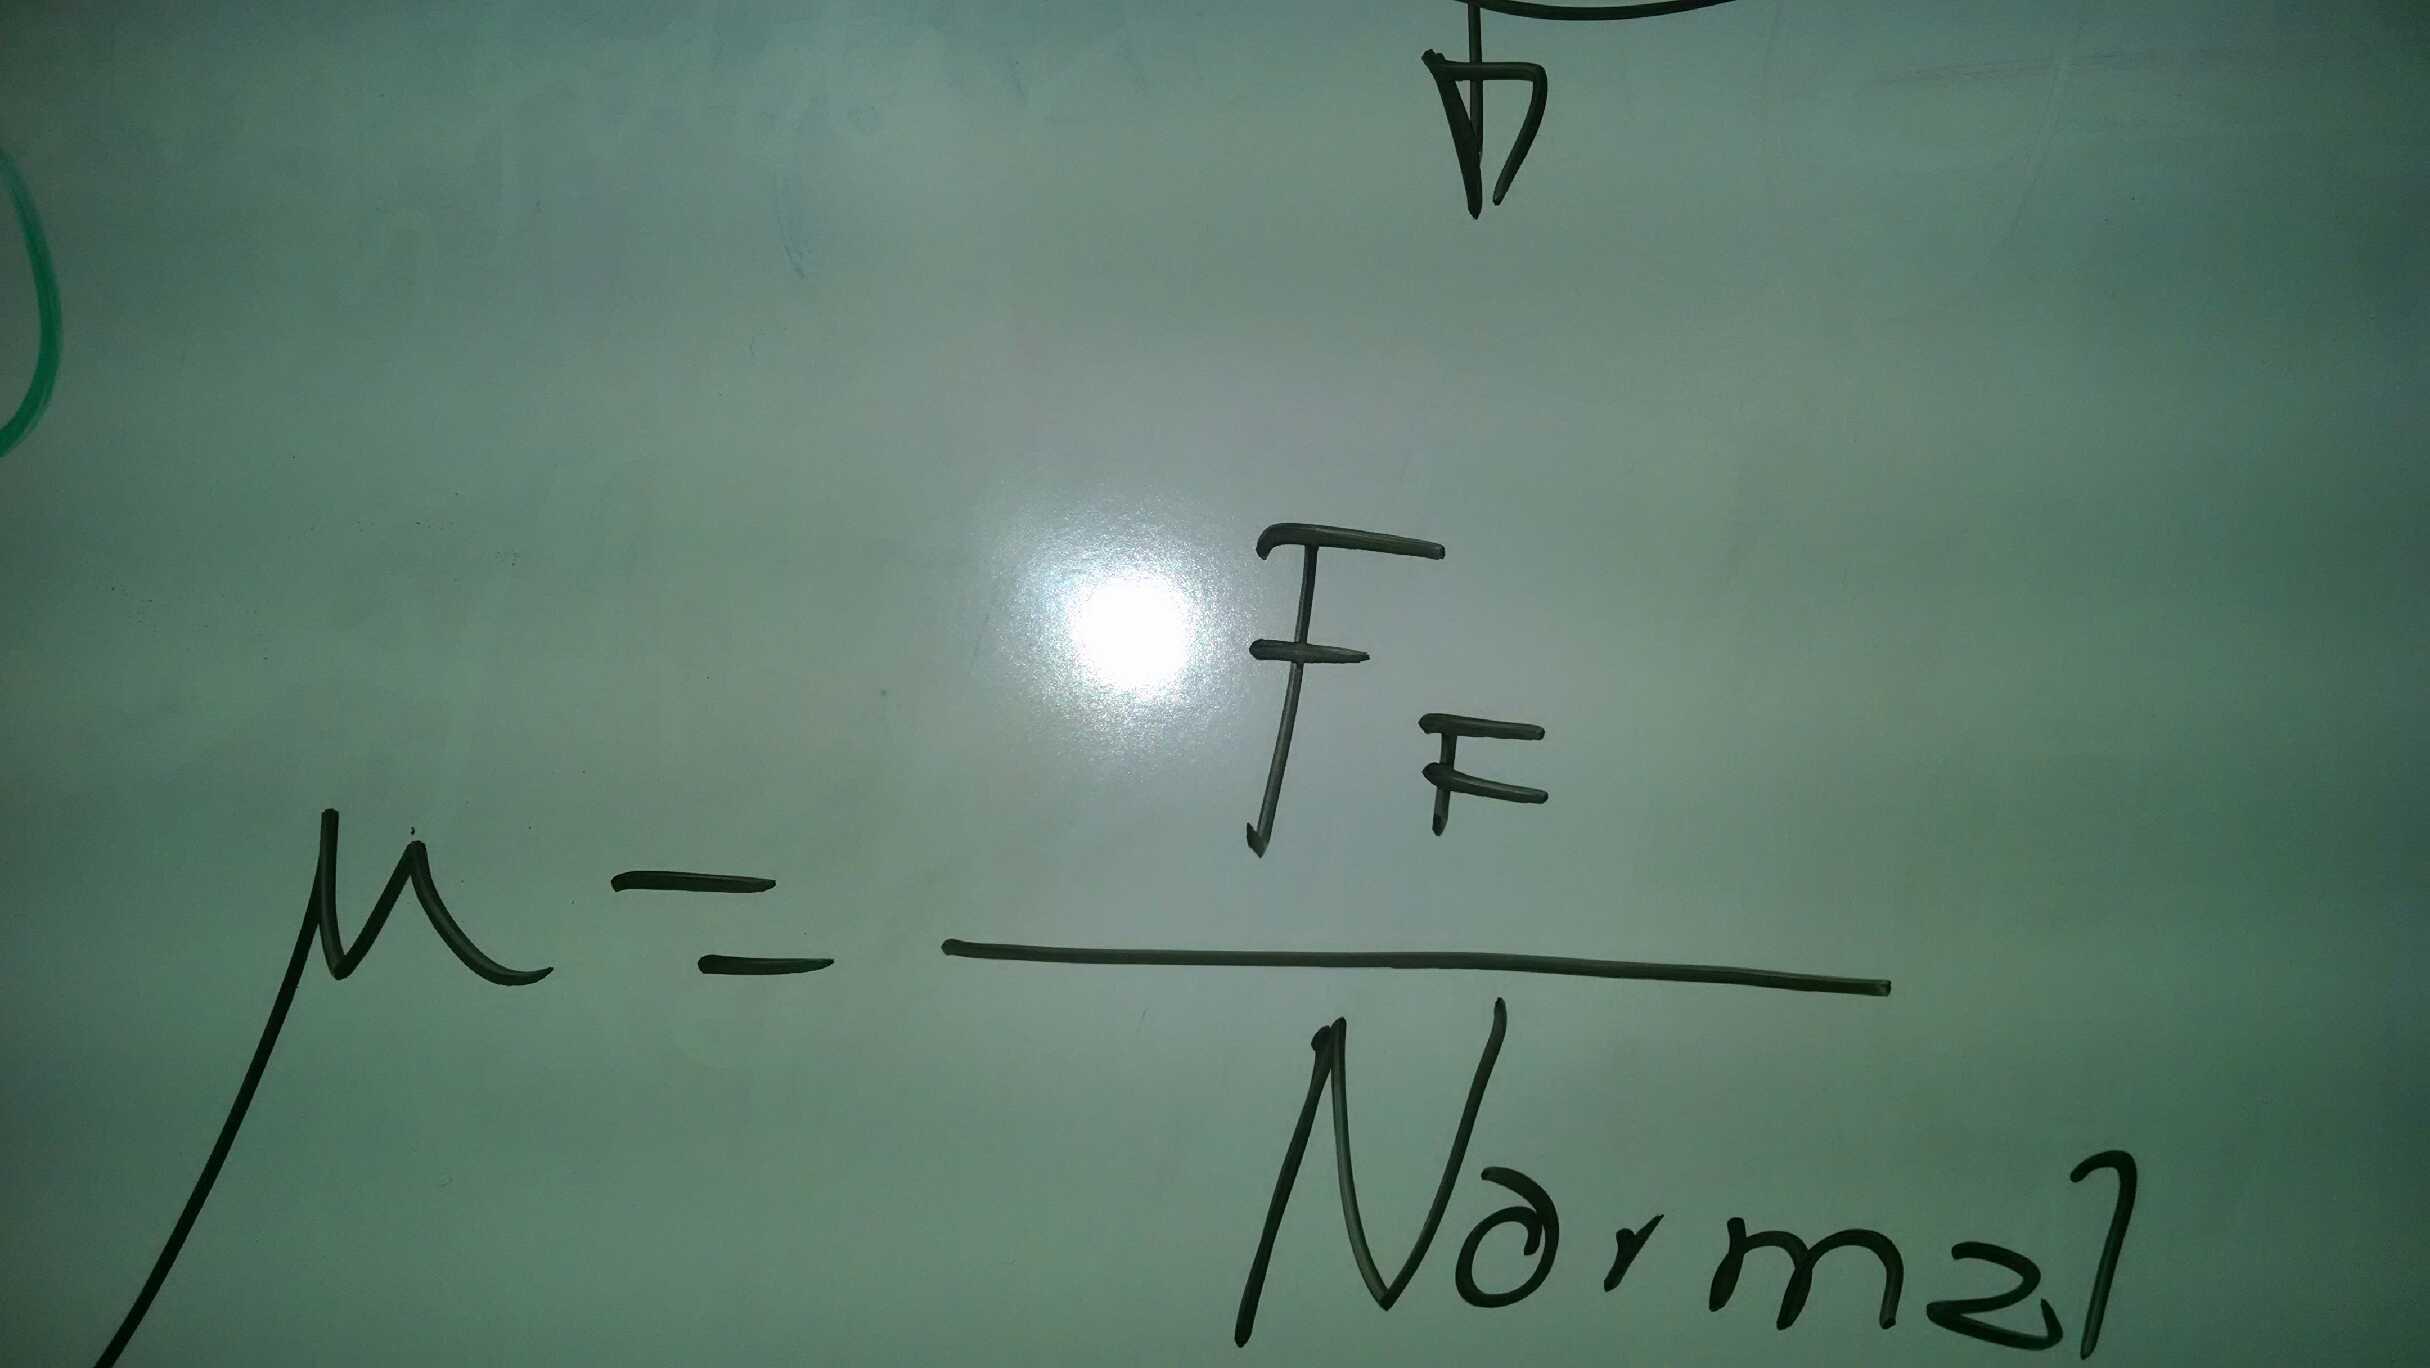 F_F
μ = ―
Normal